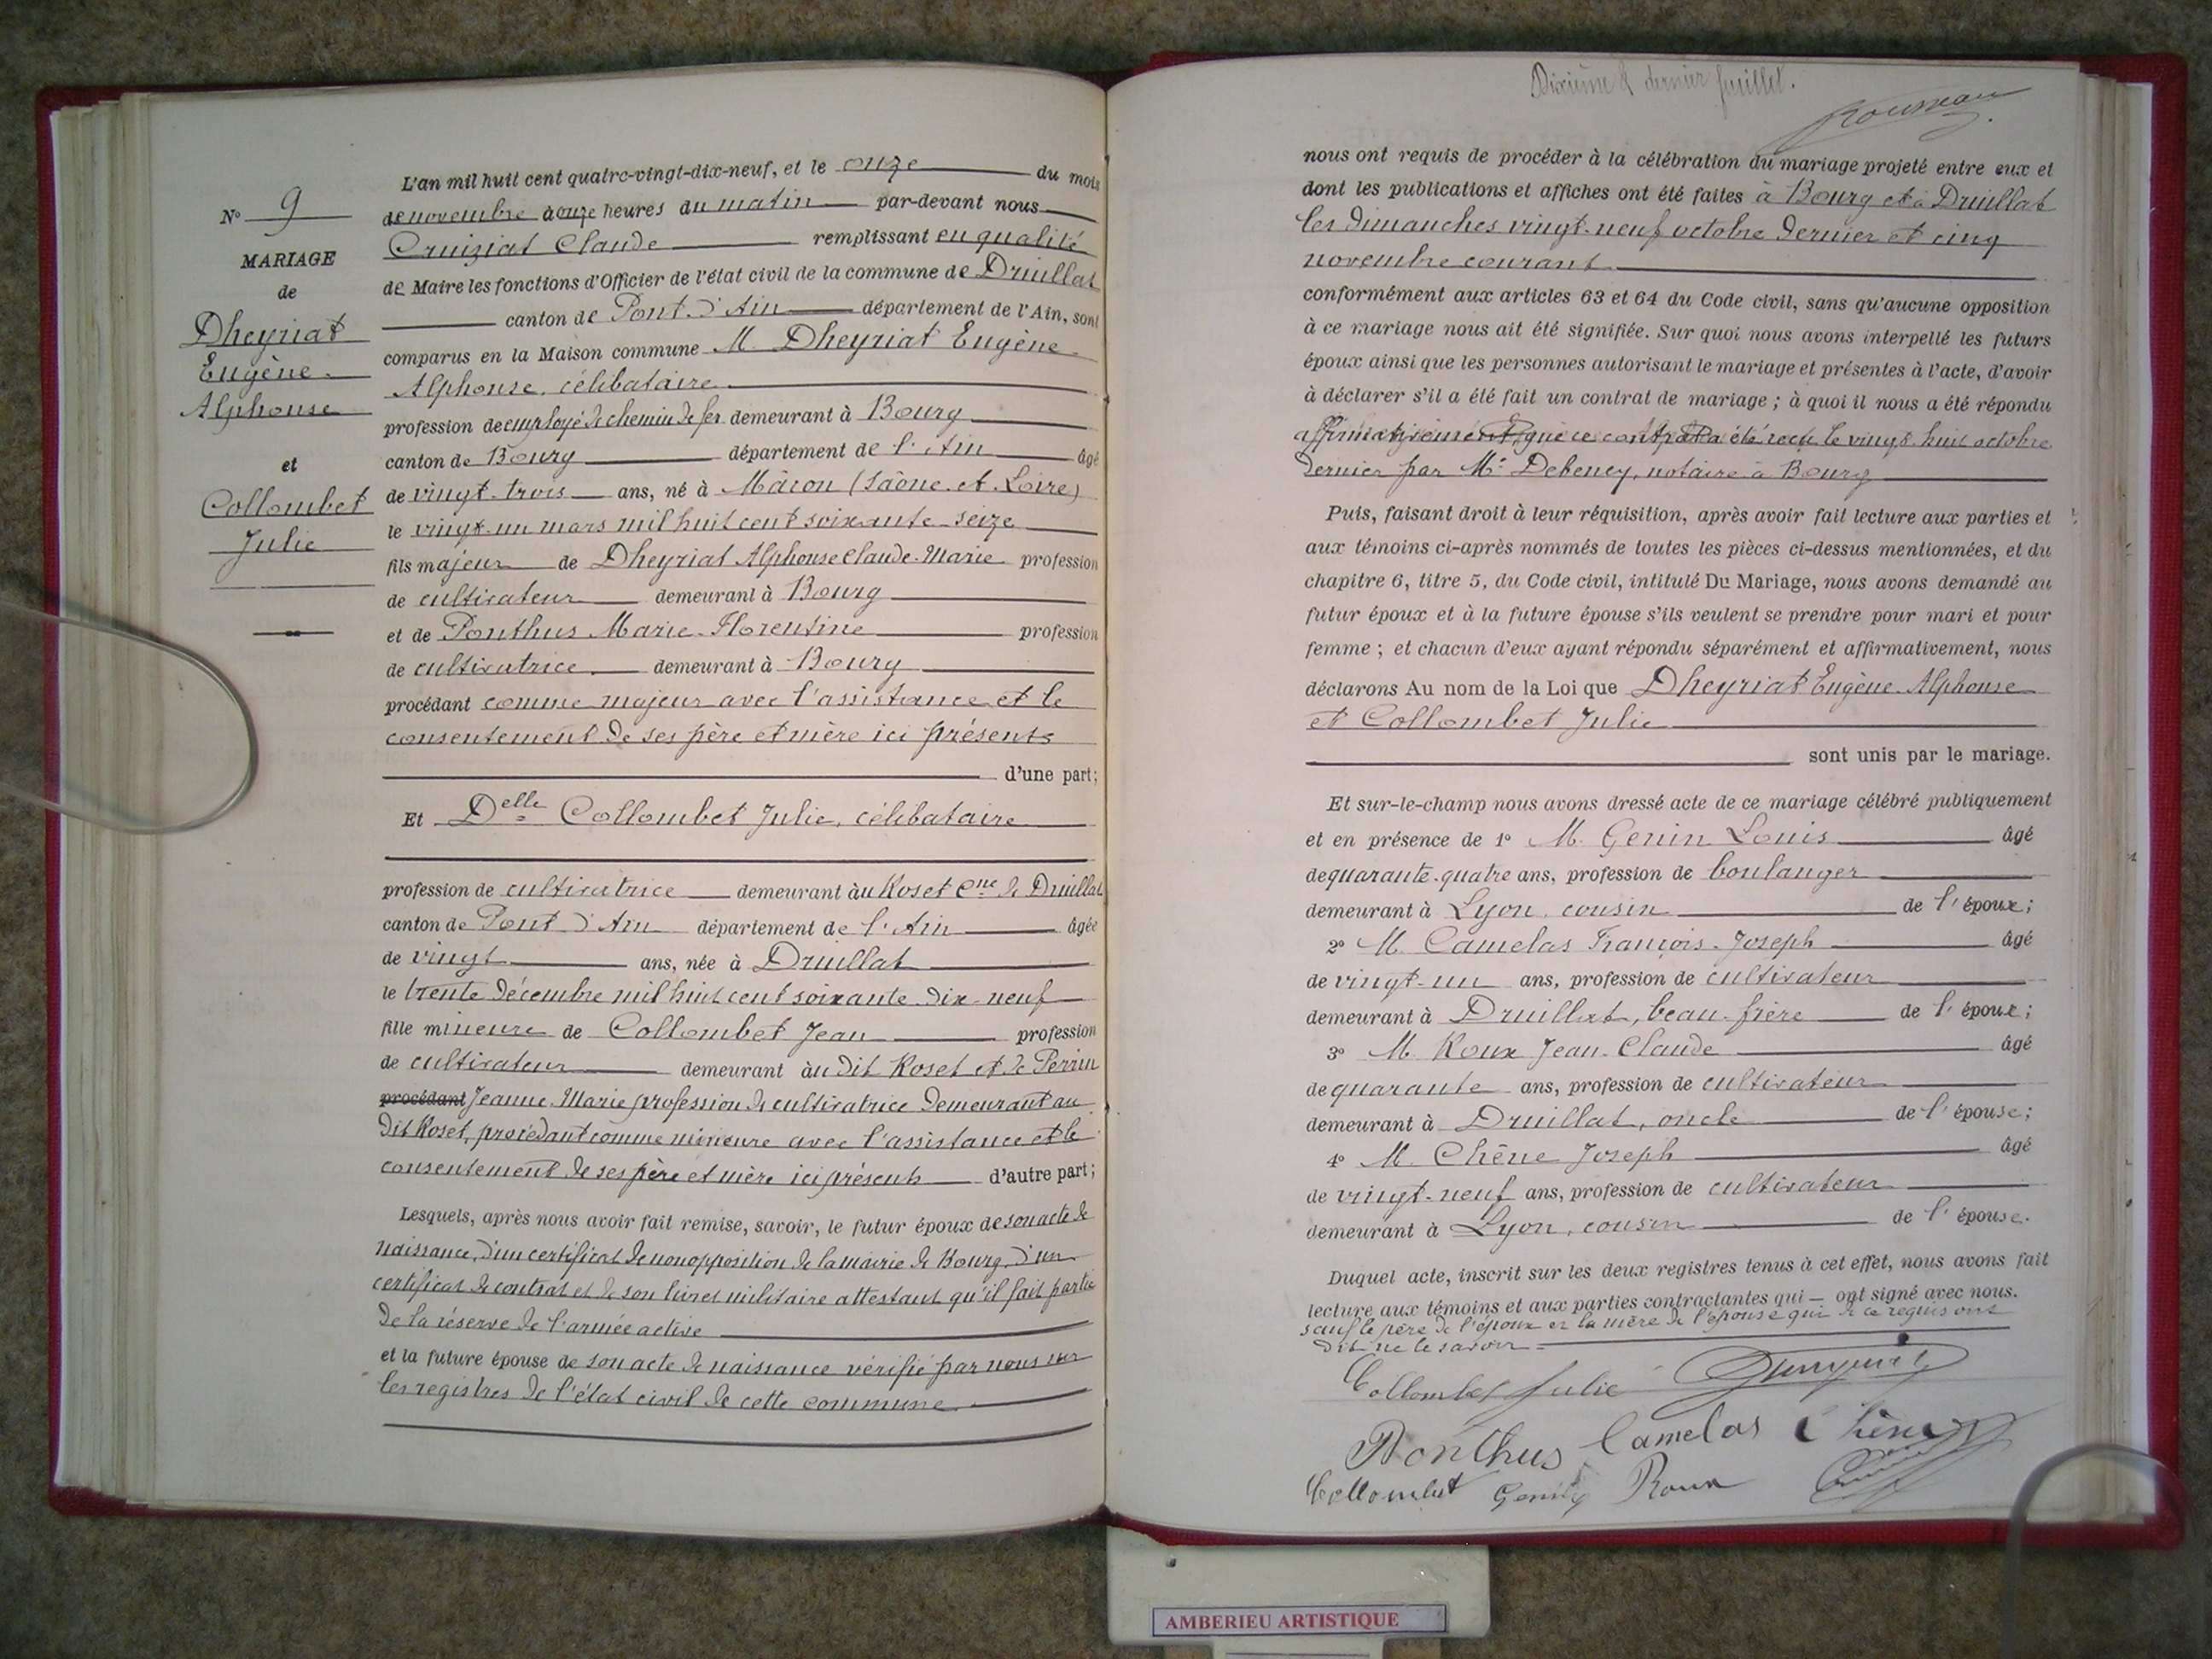 L'an mil huit cent quatre-vingt-dix-neuf, et le onze du mois
N° 9
de novembre à onze heures du matin par-devant nous
Cruiziat Claude remplissant en qualité
MARIAGE
de Maire les fonctions d'Officier de l'état civil de la commune de Druillat
de
canton de Pont-d'Ain département de l'Ain, sont
Dheyriat
comparus en la Maison commune M. Dheyriat Eugène
Eugène
Alphonse, célibataire
Alphonse
profession de employé de chemin de fer demeurant à Bourg
et
canton de Bourg département de l'Ain âgé
Collombet
de vingt-trois ans, né à Mâcon (Saône-et-Loire)
Julie
le vingt-un mars mil huit cent soixante-seize
fils majeur de Dheyriat Alphonse Claude-Marie profession
de cultivateur demeurant à Bourg
et de Ponthus Marie-Florentine profession
de cultivatrice demeurant à Bourg
procédant comme majeur avec l'assistance et le
consentement de ses père et mère ici présents
d'une part;
Et Delle Collombet Julie, célibataire
profession de cultivatrice demeurant àu Roset Cne de Druillat
canton de Pont-d'Ain département de l'Ain âgée
de vingt ans, née à Druillat
le trente décembre mil huit cent soixante-dix-neuf
fille mineure de Collombet Jean profession
de cultivateur demeurant àu dit Roset et de Perrin
procédant Jeanne-Marie profession de cultivatrice demeurant au
dit Roset, procédant comme mineure avec l'assistance et le
consentement de ses père et mère ici présents d'autre part;
Lesquels, après nous avoir fait remise, savoir, le futur époux de son acte de
naissance, d'un certificat de non opposition de la mairie de Bourg, d'un
certificat de contrat et de son livret militaire attestant qu'il fait partie
de la réserve de l'armée active
et la future épouse de son acte de naissance vérifié par nous sur
les registres de l'état civil de cette commune
Dixième & dernier feuillet.
Rousseau
nous ont requis de procéder à la célébration du mariage projeté entre eux et
dont les publications et affiches ont été faites à Bourg et à Druillat
les dimanches vingt-neuf octobre dernier et cinq
novembre courant
conformément aux articles 63 et 64 du Code civil, sans qu'aucune opposition
à ce mariage nous ait été signifiée. Sur quoi nous avons interpellé les futurs
époux ainsi que les personnes autorisant le mariage et présentes à l'acte, d'avoir
à déclarer s'il a été fait un contrat de mariage; à quoi il nous a été répondu
affirmativement, que ce contrat a été reçu le vingt-huit octobre
dernier par Me Debeney, notaire à Bourg
Puis, faisant droit à leur réquisition, après avoir fait lecture aux parties et
aux témoins ci-après nommés de toutes les pièces ci-dessus mentionnées, et du
chapitre 6, titre 5, du Code civil, intitulé Du Mariage, nous avons demandé au
futur époux et à la future épouse s'ils veulent se prendre pour mari et pour
femme; et chacun d'eux ayant répondu séparément et affirmativement, nous
déclarons Au nom de la Loi que Dheyriat Eugène-Alphonse
et Collombet Julie
sont unis par le mariage.
Et sur-le-champ nous avons dressé acte de ce mariage célébré publiquement
et en présence de 1° M. Genin Louis âgé
de quarante-quatre ans, profession de boulanger
demeurant à Lyon, cousin de l'époux;
2° M. Camelas François-Joseph âgé
de vingt-un ans, profession de cultivateur
demeurant à Druillat, beau-frère de l'époux;
3° M. Roux Jean-Claude âgé
de quarante ans, profession de cultivateur
demeurant à Druillat, oncle de l'épouse;
4° M. Chêne Joseph âgé
de vingt-neuf ans, profession de cultivateur
demeurant à Lyon, cousin de l'épouse.
Duquel acte, inscrit sur les deux registres tenus à cet effet, nous avons fait
lecture aux témoins et aux parties contractantes qui ont signé avec nous.
sauf le père de l'époux et la mère de l'épouse qui de ce requis ont
dit ne le savoir
Collombet Julie
Ponthus Camelas Chêne
Collombet Genin Roux
AMBERIEU ARTISTIQUE